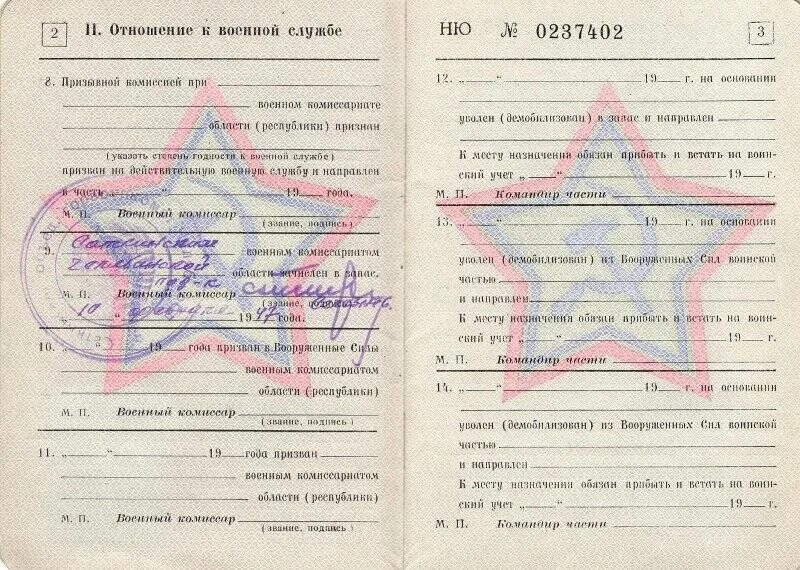 2
II. Отношение к военной службе
8. Призывной комиссией при
военном комиссариате
области (республики) признан
(указать степень годности к военной службе)
призван на действительную военную службу и направлен
в часть „ “ 19 года.
М. П. Военный комиссар
(звание, подпись)
9. Саткинским военным комиссариатом
Челябинской области зачислен в запас.
М. П. Военный комиссар
(звание, подпись)
„10 “ 1947 года.
10. „ “ 19 года призван в Вооруженные Силы
военным комиссариатом
области (республики)
М. П. Военный комиссар
(звание, подпись)
11. „ “ 19 года призван
военным комиссариатом
области (республики)
М. П. Военный комиссар
(звание, подпись)
НЮ № 0237402
3
12. „ “ 19 г. на основании
уволен (демобилизован) в запас и направлен
К месту назначения обязан прибыть и встать на воин-
ский учет „ “ 19 г.
М. П. Командир части
13. „ “ 19 г. на основании
уволен (демобилизован) из Вооруженных Сил воинской
частью
и направлен
К месту назначения обязан прибыть и встать на воин-
ский учет „ “ 19 г.
М. П. Командир части
14. „ “ 19 г. на основании
уволен (демобилизован) из Вооруженных Сил воинской
частью
и направлен
К месту назначения обязан прибыть и встать на воин-
ский учет „ “ 19 г.
М. П. Командир части